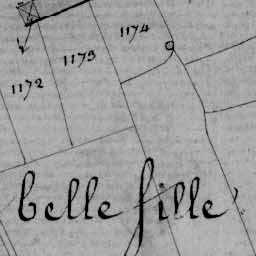 1174
1173
1172
belle fille